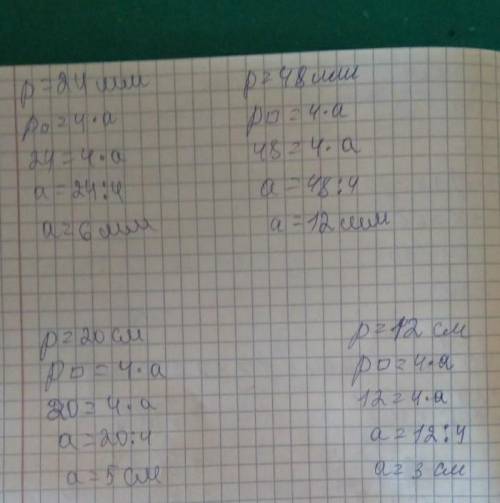 p=24 мм
p□=4·a
24=4·a
a=24:4
a=6 мм
p=48 мм
p□=4·a
48=4·a
a=48:4
a=12 мм
p=20 см
p□=4·a
20=4·a
a=20:4
a=5 см
p=12 см
p□=4·a
12=4·a
a=12:4
a=3 см